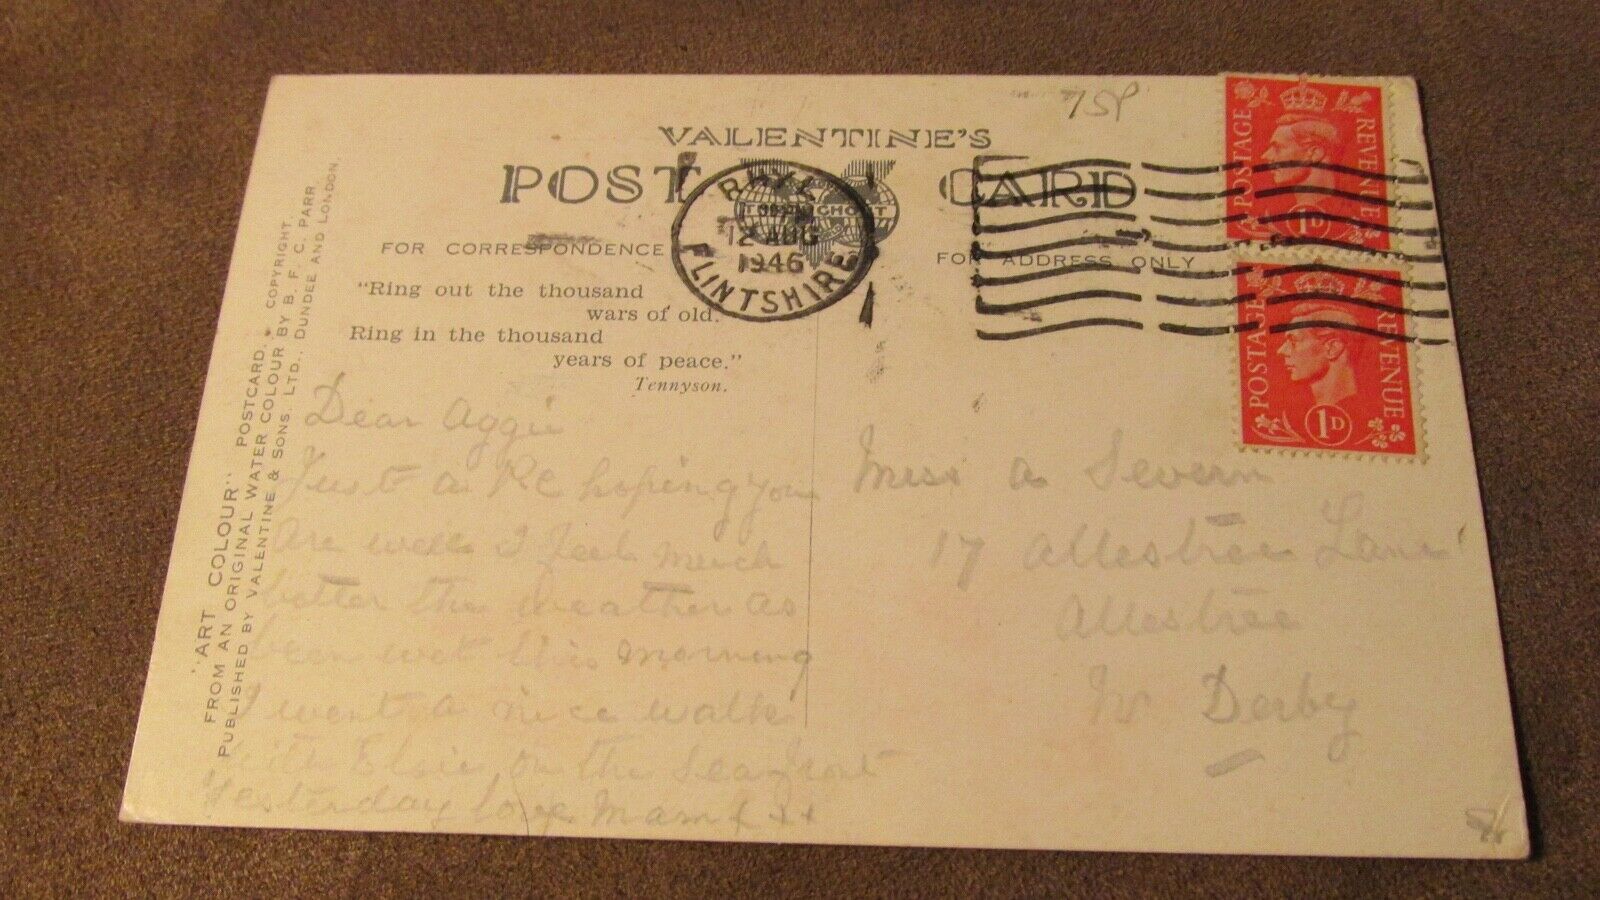 75p
VALENTINE'S
POST CARD
RHYL
12 AUG
1946
FLINTSHIRE
FOR CORRESPONDENCE
FOR ADDRESS ONLY
POSTAGE REVENUE
1D
POSTAGE REVENUE
1D
"Ring out the thousand
wars of old.
Ring in the thousand
years of peace."
Tennyson.
"ART COLOUR" POSTCARD. COPYRIGHT
FROM AN ORIGINAL WATER COLOUR BY B. F. C. PARR
PUBLISHED BY VALENTINE & SONS. LTD., DUNDEE AND LONDON.
Dear Aggie
Just a PC hoping you
are well I feel much
better the weather as
been wet this morning
I went a nice walk
with Elsie on the Sea front
Yesterday love Mam
Miss A Severn
17 Allestree Lane
Allestree
Nr Derby